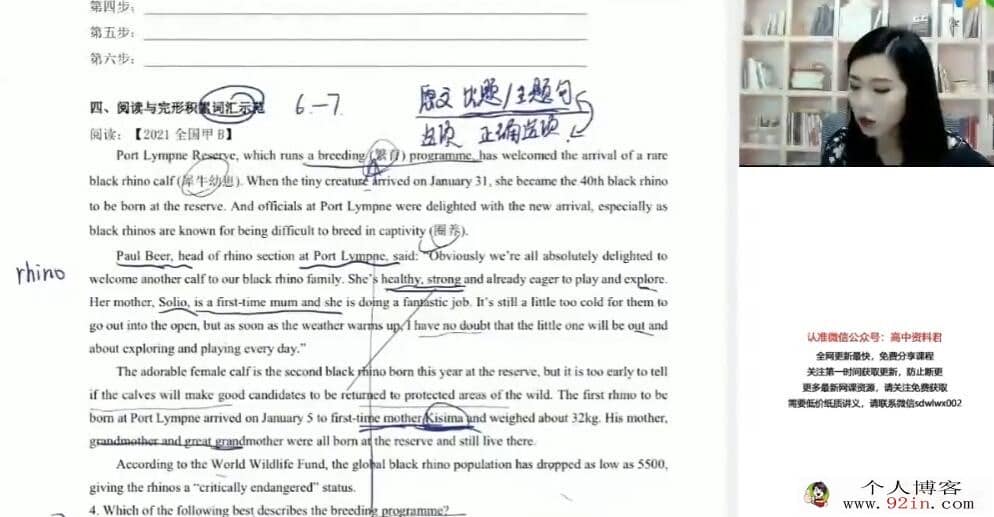 第四步:
第五步:
第六步:
四、阅读与完形积累词汇示范 6-7 原文 出题/主题句
选项 正确选项
阅读:【2021 全国甲 B】
Port Lympne Reserve, which runs a breeding (繁育) programme, has welcomed the arrival of a rare
black rhino calf (犀牛幼崽). When the tiny creature arrived on January 31, she became the 40th black rhino
to be born at the reserve. And officials at Port Lympne were delighted with the new arrival, especially as
black rhinos are known for being difficult to breed in captivity (圈养).
Paul Beer, head of rhino section at Port Lympne, said: "Obviously we're all absolutely delighted to
rhino
welcome another calf to our black rhino family. She's healthy, strong and already eager to play and explore.
Her mother, Solio, is a first-time mum and she is doing a fantastic job. It's still a little too cold for them to
go out into the open, but as soon as the weather warms up, I have no doubt that the little one will be out and
about exploring and playing every day."
The adorable female calf is the second black rhino born this year at the reserve, but it is too early to tell
if the calves will make good candidates to be returned to protected areas of the wild. The first rhino to be
born at Port Lympne arrived on January 5 to first-time mother Kisima and weighed about 32kg. His mother,
grandmother and great grandmother were all born at the reserve and still live there.
According to the World Wildlife Fund, the global black rhino population has dropped as low as 5500,
giving the rhinos a "critically endangered" status.
4. Which of the following best describes the breeding programme?
认准微信公众号：高中资料君
全网更新最快，免费分享课程
关注第一时间获取更新，防止断更
更多最新网课资源，请关注免费获取
需要低价纸质讲义，请联系微信sdwlwx002
个人博客
www.92in.com